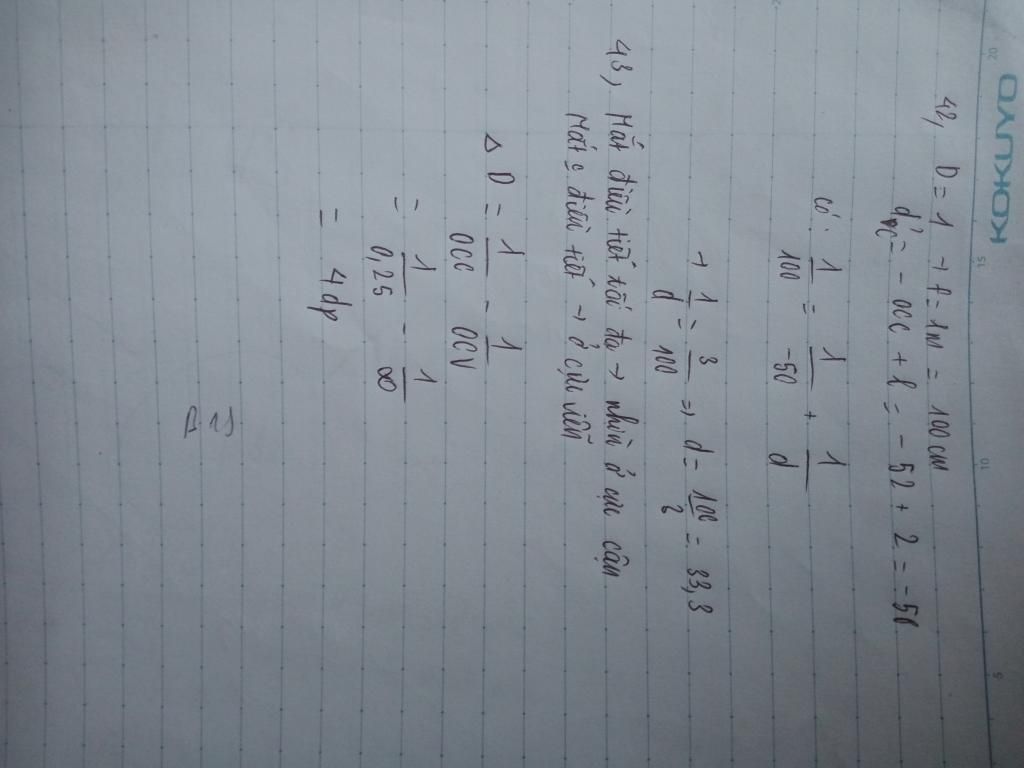 KOKUYO
5 10 15 20
42, D = 1 → f = 1m = 100cm
d'c = - OCC + l = - 52 + 2 = -50
có: 1/100 = 1/-50 + 1/d
→ 1/d = 3/100 => d = 100/3 = 33,3
43, Mắt điều tiết tối đa → nhìn ở cực cận
Mắt điều tiết → ở cực viễn
Δ D = 1/OCC - 1/OCV
= 1/0,25 - 1/∞
= 4 dp